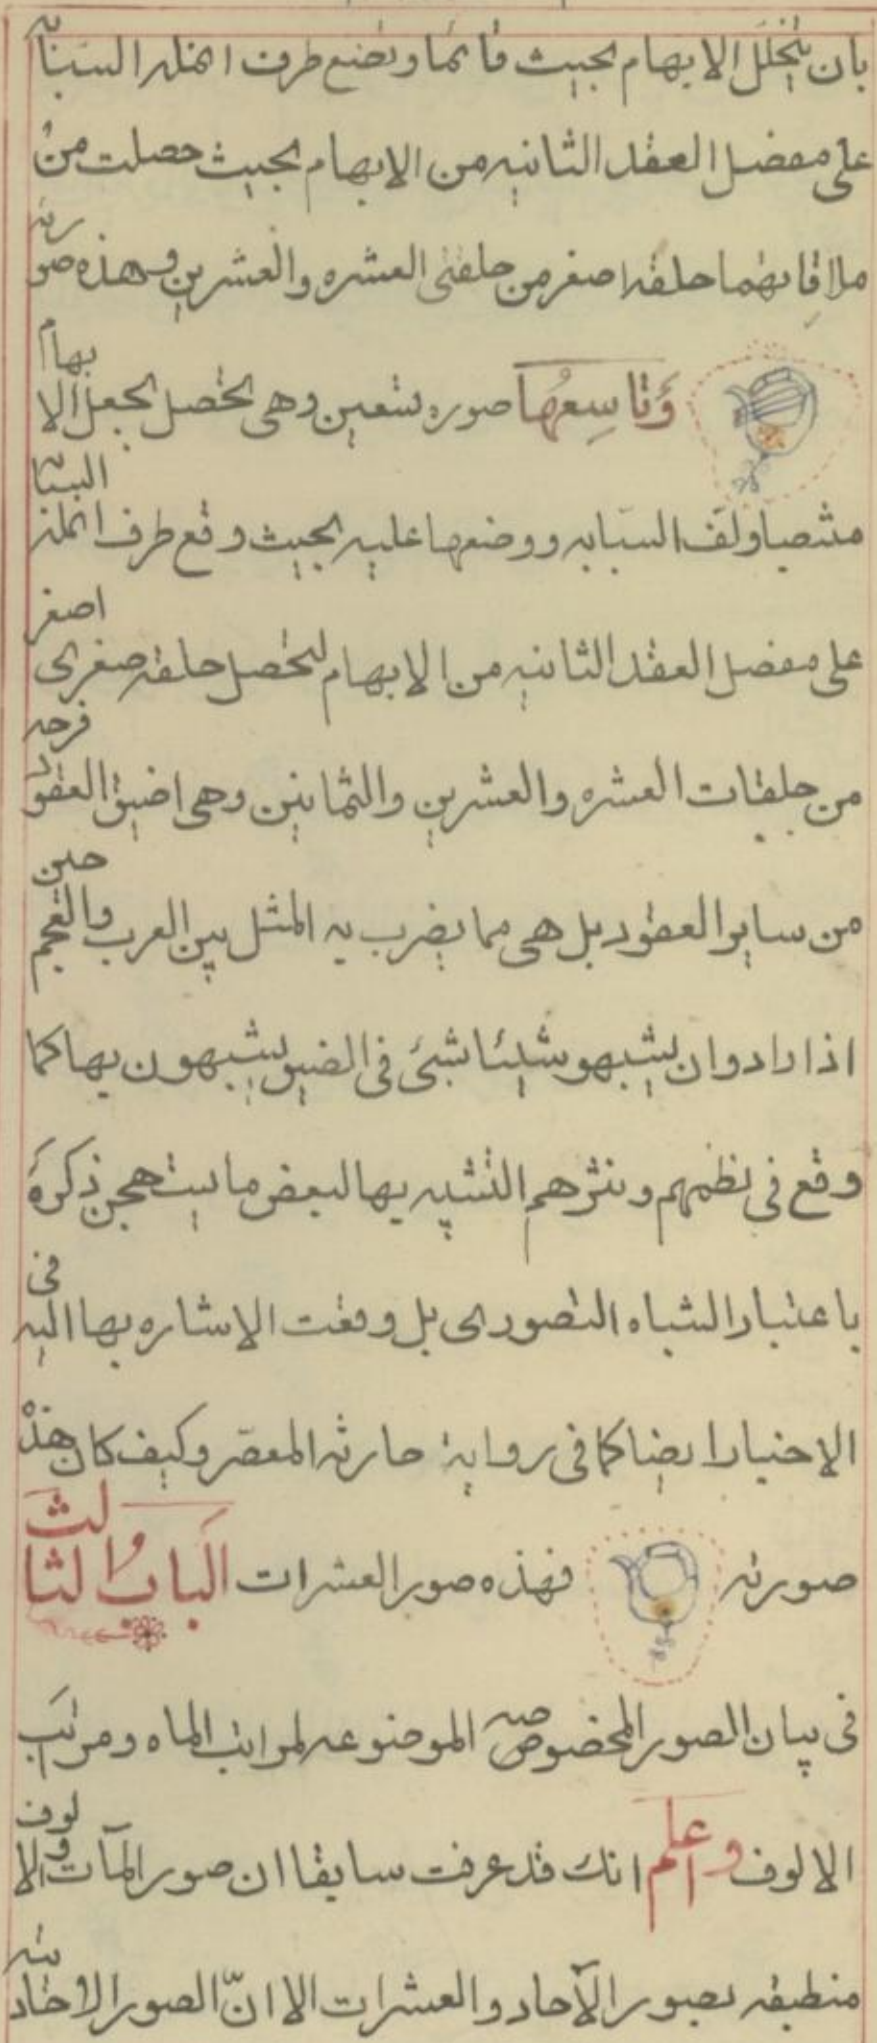 بان يتخلل الابهام بحيث قائما ويضع طرف انمله السبابه
على مفصل العقد الثانيه من الابهام بحيث حصلت من
ملاقاتهما حلقه اصغر من حلقتى العشره والعشرين وهذه صورته
وَتاسِعُها صوره تسعين وهى تحصل بجعل الابهام
منتصبا ولف السبابه ووضعها عليه بحيث وقع طرف انمله السبا
على مفصل العقد الثانيه من الابهام ليحصل حلقه صغرى اصغر
من حلقات العشره والعشرين والثمانين وهى اضيق العقود فرجه
من ساير العقود بل هى مما يضرب به المثل بين العرب والعجم حين
اذا رادوان يشبهو شيئا بشئ فى الضيق يشبهون بها كما
وقع فى نظمهم ونثرهم التشبيه بها لبعض ما يستهجن ذكره
باعتبار الشباه التصورى بل وقعت الاشاره بها اليه فى
الاخبار ايضا كما فى رواية حارثه المعصر وكيف كان هذه
صورته فهذه صور العشرات الَبابُ الثالث
فى بيان الصور المخصوصه الموضوعه لمراتب الماه ومراتب
الالوف واعلم انك قد عرفت سابقا ان صور المآت والالوف
منطبقه بصور الآحاد والعشرات الا انّ الصور الاحاديه